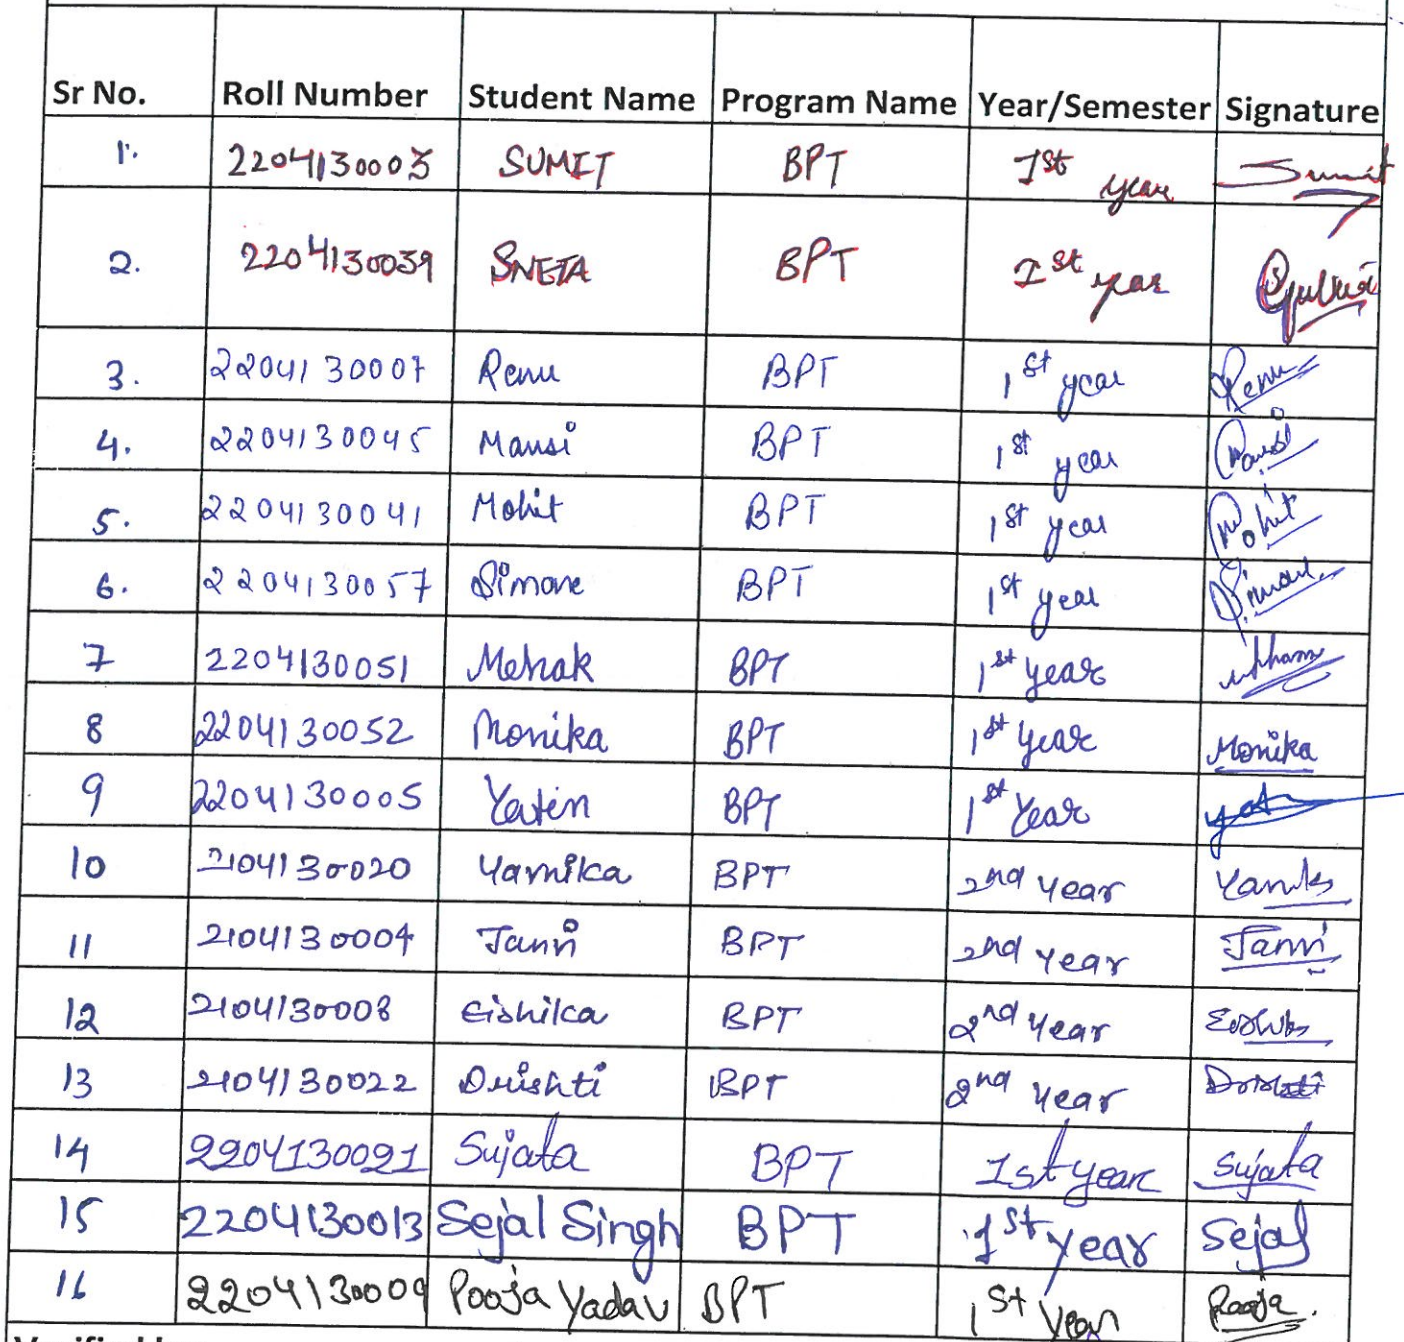 Sr No. Roll Number Student Name Program Name Year/Semester Signature
1. 2204130003 SUMIT BPT Ist year Sumit
2. 2204130039 SNETA BPT Ist year
3. 2204130007 Renu BPT 1st year Renu
4. 2204130045 Mansi BPT 1st year Mansi
5. 2204130041 Mohit BPT 1st year Mohit
6. 2204130057 Simone BPT 1st year
7 2204130051 Mehak BPT 1st year
8 2204130052 Monika BPT 1st year Monika
9 2204130005 Yatin BPT 1st Year
10 2104130020 Yamika BPT 2nd year
11 2104130004 Tanvi BPT 2nd year Tanvi
12 2104130008 Eishika BPT 2nd year
13 2104130022 Drishti BPT 2nd year
14 2204130021 Sujata BPT 1st year Sujata
15 2204130013 Sejal Singh BPT 1st year Sejal
16 2204130009 Pooja Yadav BPT 1st year Pooja.